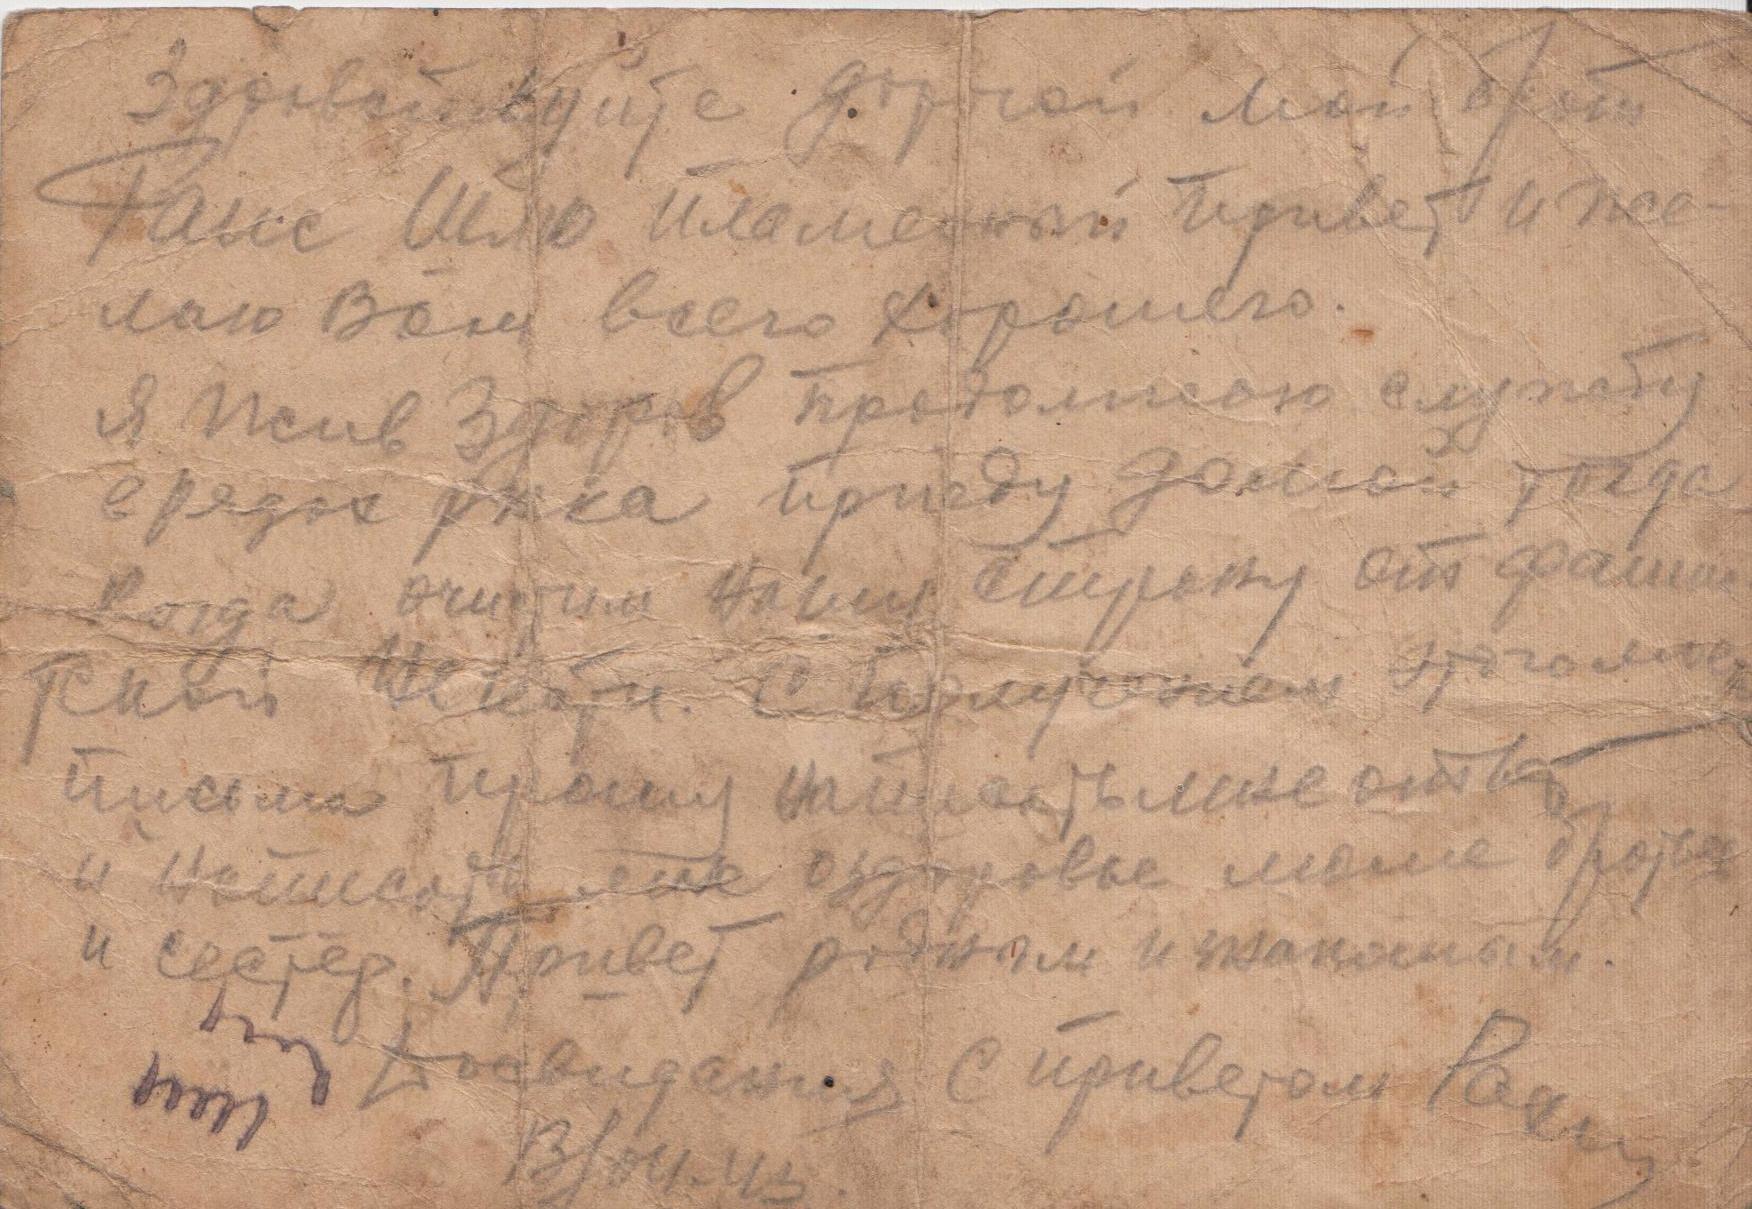 Здравствуйте дорогой мой брат
Раис Шлю пламенный привет и же-
лаю Вам всего хорошего.
Я жив здоров продолжаю службу
в рядах ркка приеду домой тогда
когда очистим нашу строну от фашис
тской нечети. С получением этого
письма прошу написать мне ответ
и написать мне оздоровье маме братья
и сестер. Привет родным и знаканым.
Досвидания С приветом